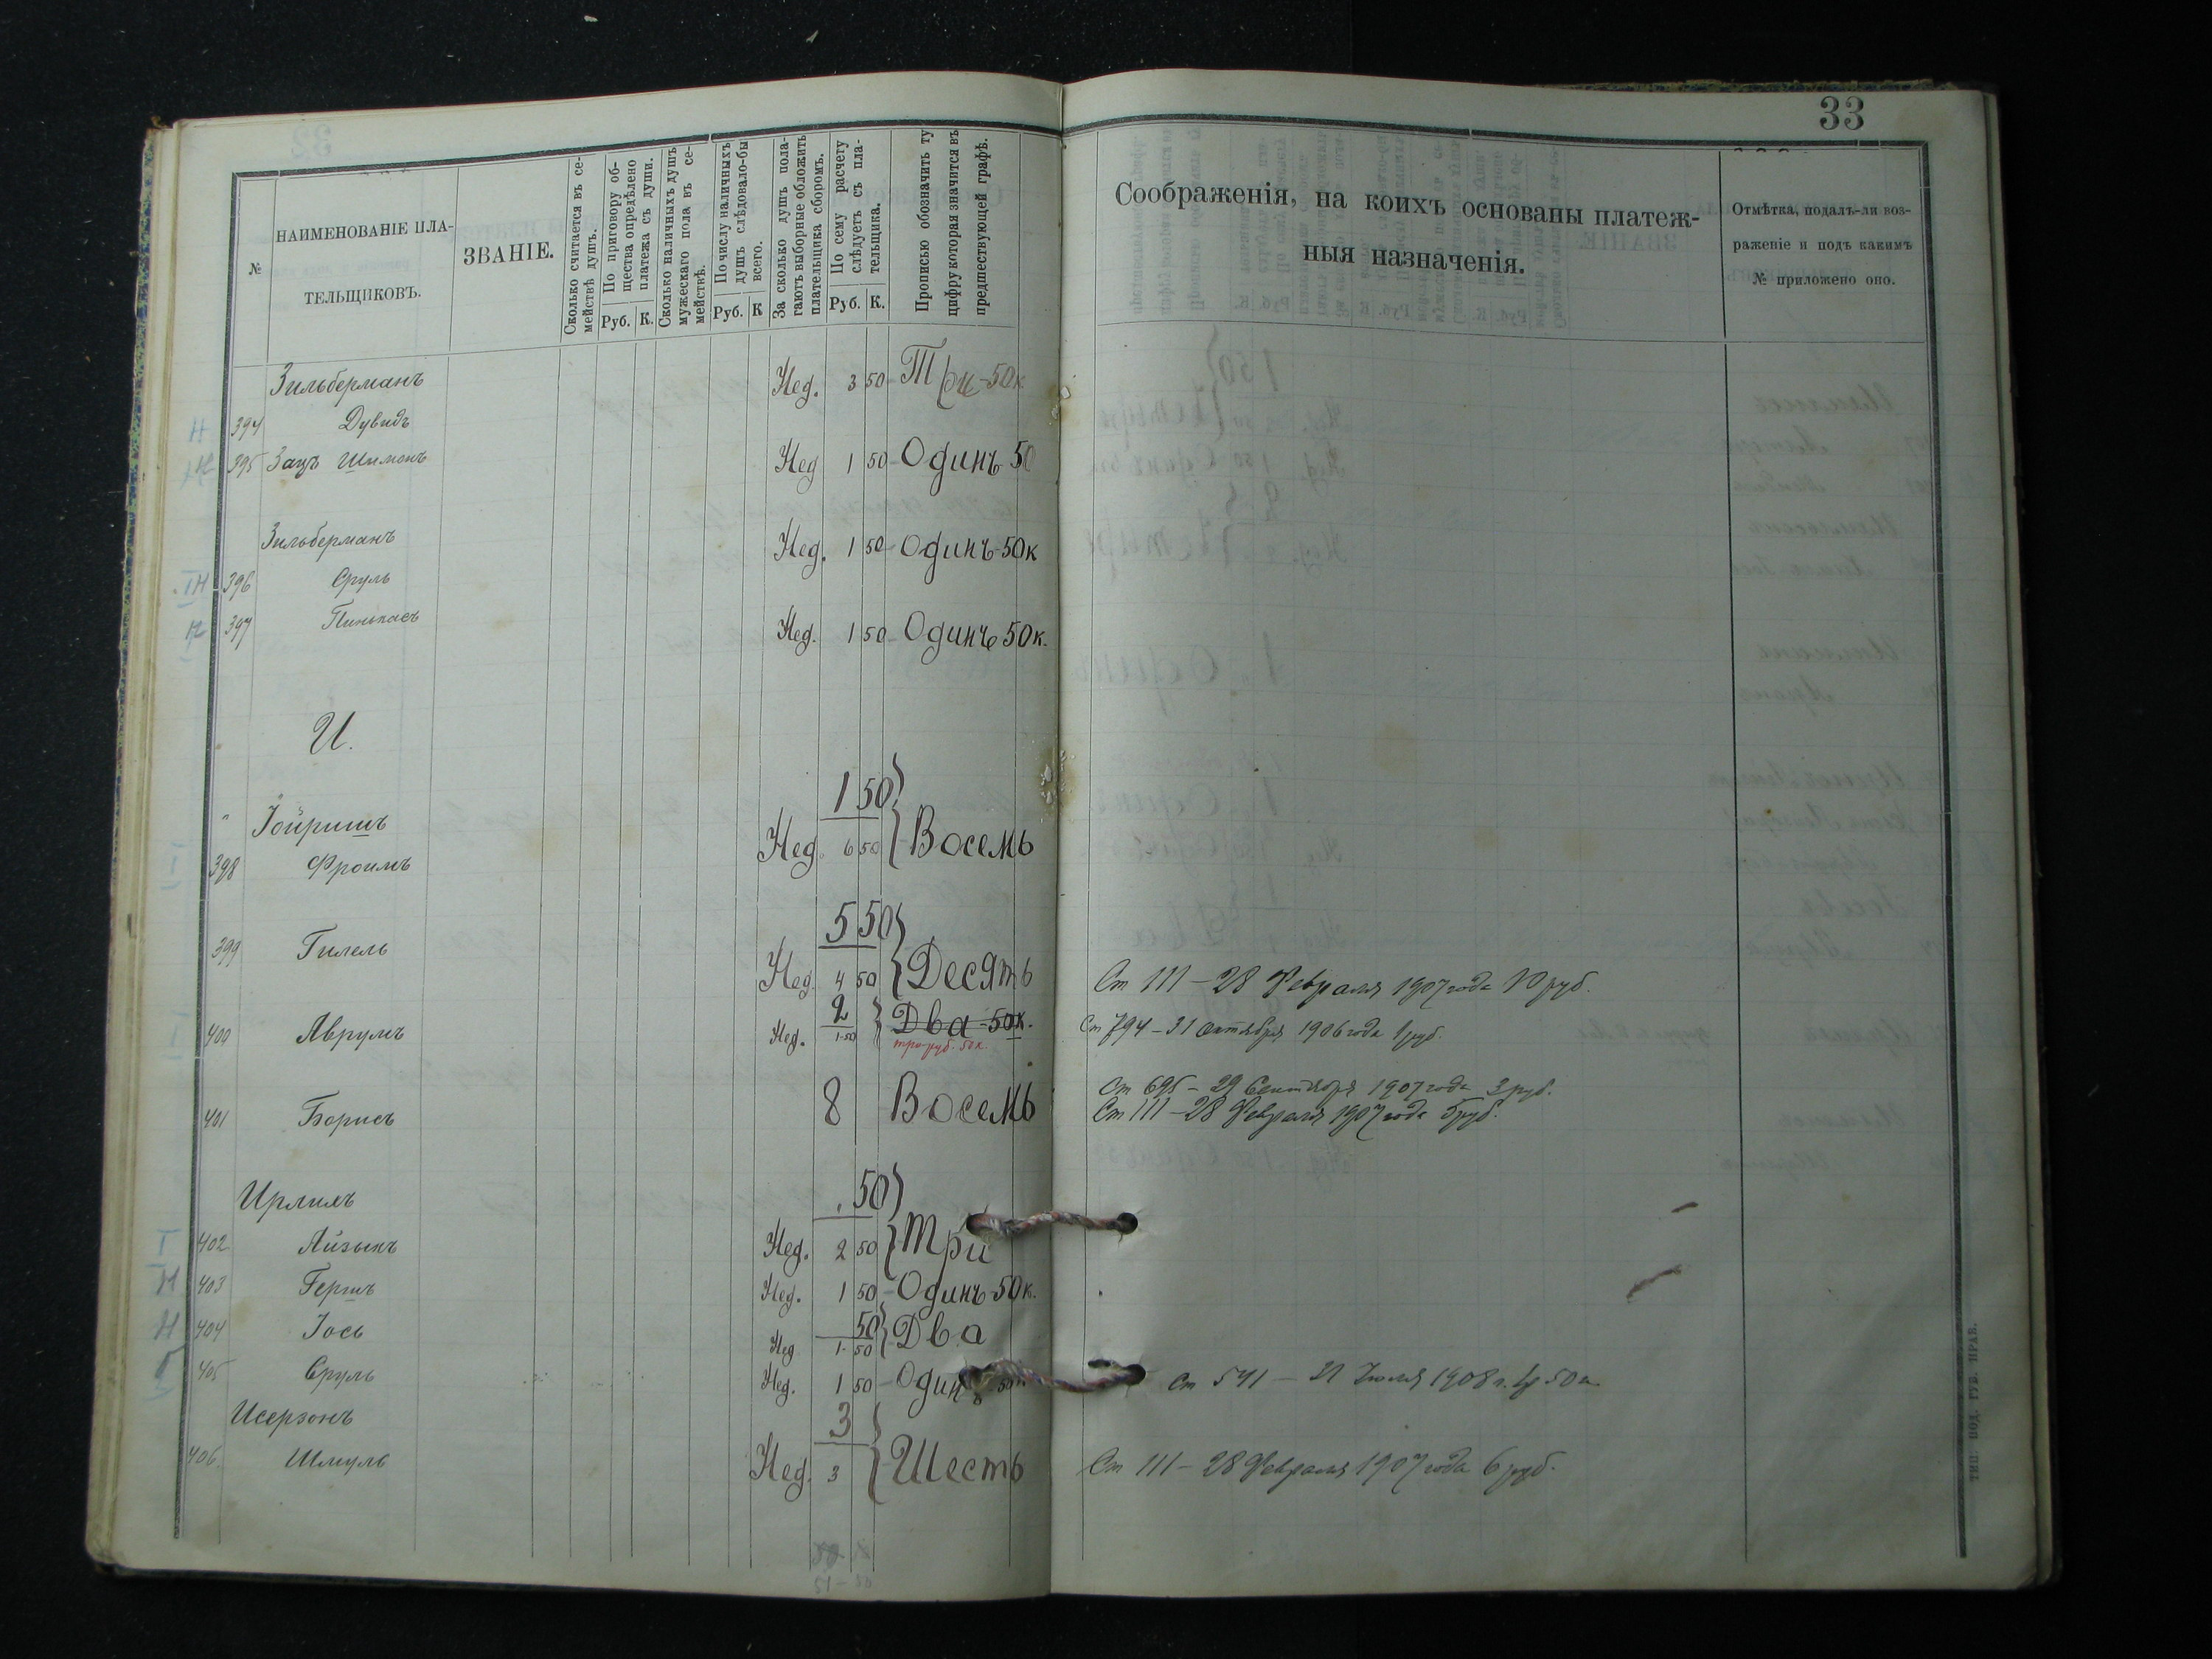 33
№
НАИМЕНОВАНІЕ ПЛА-
ТЕЛЬЩИКОВЪ.
ЗВАНІЕ.
Сколько считается въ се-
мействѣ душъ.
По приговору об-
щества опредѣлено
платежа съ души.
Руб. К.
Сколько наличныхъ душъ
мужескаго пола въ се-
мействѣ.
По числу наличныхъ
душъ слѣдовало-бы
всего.
Руб. К
За сколько душъ пола-
гаютъ выборные обложить
плательщика сборомъ.
По сему расчету
слѣдуетъ съ пла-
тельщика.
Руб. К.
Прописью обозначить ту
цифру которая значится въ
предшествующей графѣ.
Соображенія, на коихъ основаны платеж-
ныя назначенія.
Отмѣтка, подалъ-ли воз-
раженіе и подъ какимъ
№ приложено оно.
Зильберманъ Нед. 3 50 Три-50к
394 Дувидъ
395 Зацъ Шимонъ Нед 1 50 Одинъ 50
Зильберманъ Нед. 1 50 Одинъ-50к
396 Сруль
397 Пинькасъ Нед. 1 50 Одинъ 50к.
И.
1 50
Іойришъ Нед. 6 50 Восемь
398 Фроимъ
5 50
399 Гилель Нед. 4 50 Десять
Ст 111 – 28 Февраля 1907 года 10 руб.
2
400 Аврумъ Нед. 1-50 Два-50к.
три руб. 50к.
Ст 794 – 31 октября 1906 года 1 руб.
Ст 695 – 29 Сентября 1907 года 3 руб.
401 Борисъ 8 Восемь
Ст 111 – 28 Февраля 1907 года 5 руб.
Ирлихъ 50
402 Айзыкъ Нед. 2 50 Три
403 Гершъ Нед. 1 50 Одинъ-50к.
50
404 Іось Нед 1- 50 Два
405 Сруль Нед. 1 50 Одинъ 50к
Ст 541 – 21 Іюля 1908 г. 1р 50 к
Исерзонъ 3
406. Шмуль Нед. 3 Шесть
Ст 111 – 28 Февраля 1907 года 6 руб.
ТИП. ПОД. ГУБ. ПРАВ.